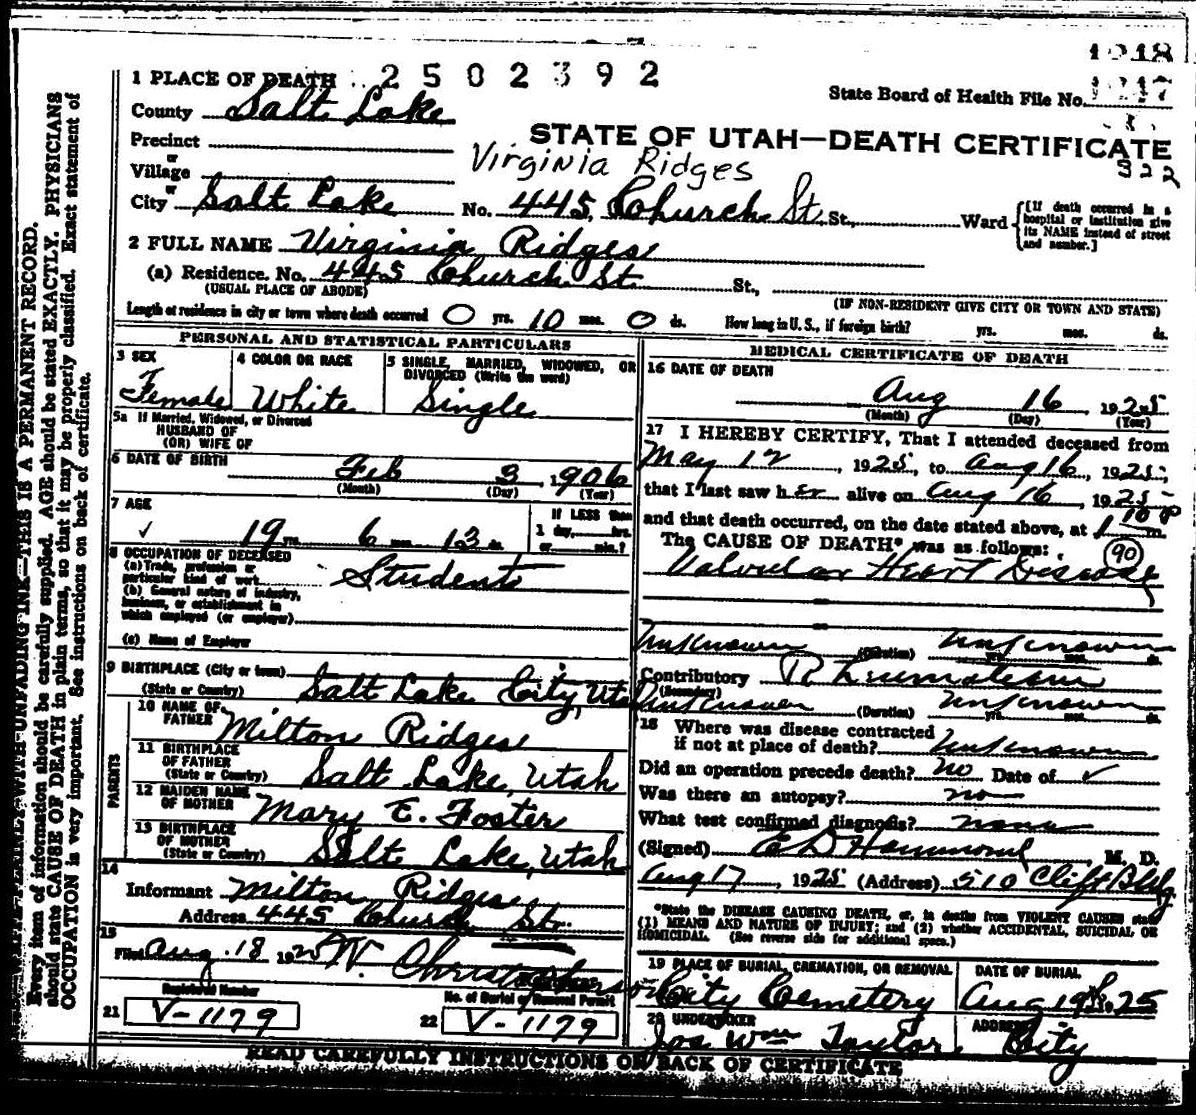 1 PLACE OF DEATH 2502392
State Board of Health File No.
County Salt Lake
STATE OF UTAH—DEATH CERTIFICATE
322
Precinct
or
Village
Virginia Ridges
or
City Salt Lake No. 445, Church St. St., Ward
[If death occurred in a hospital or institution give its NAME instead of street and number.]
2 FULL NAME Virginia Ridges
(a) Residence. No. 445 Church St. St.,
(USUAL PLACE OF ABODE) (IF NON-RESIDENT GIVE CITY OR TOWN AND STATE)
Length of residence in city or town where death occurred 0 yrs. 10 mos. 0 ds. How long in U. S., if foreign birth? yrs. mos. ds.
PERSONAL AND STATISTICAL PARTICULARS
3 SEX
Female
4 COLOR OR RACE
White
5 SINGLE, MARRIED, WIDOWED, OR DIVORCED (Write the word)
Single
5a If Married, Widowed, or Divorced
HUSBAND OF
(OR) WIFE OF
6 DATE OF BIRTH
Feb 3, 1906
(Month) (Day) (Year)
7 AGE
19 yrs. 6 mos. 13 ds.
If LESS than
1 day, hrs.
or min.?
8 OCCUPATION OF DECEASED
(a) Trade, profession or particular kind of work Student
(b) General nature of industry, business, or establishment in which employed (or employer)
(c) Name of Employer
9 BIRTHPLACE (City or town)
(State or Country) Salt Lake City, Utah
PARENTS
10 NAME OF FATHER Milton Ridges
11 BIRTHPLACE OF FATHER
(State or Country) Salt Lake, Utah
12 MAIDEN NAME OF MOTHER Mary E. Foster
13 BIRTHPLACE OF MOTHER
(State or Country) Salt Lake, Utah
14
Informant Milton Ridges
Address 445 Church St.
15
Filed Aug. 18 1925
Registered Number
21 V-1179
No. of Burial or Removal Permit
22 V-1179
MEDICAL CERTIFICATE OF DEATH
16 DATE OF DEATH
Aug 16, 1925
(Month) (Day) (Year)
17 I HEREBY CERTIFY, That I attended deceased from
May 12, 1925, to Aug 16, 1925,
that I last saw her alive on Aug 16, 1925
and that death occurred, on the date stated above, at 1 10 P m.
The CAUSE OF DEATH* was as follows: 90
Valvular Heart Disease
Unknown (Duration) Unknown yrs. mos. ds.
Contributory Rheumatism
(Secondary)
Unknown (Duration) Unknown yrs. mos. ds.
18 Where was disease contracted
if not at place of death? Unknown
Did an operation precede death? no Date of ✓
Was there an autopsy? no
What test confirmed diagnosis? none
(Signed) E D Hammond, M. D.
Aug 17, 1925 (Address) 510 Clift Bldg
*State the DISEASE CAUSING DEATH, or, in deaths from VIOLENT CAUSES state
(1) MEANS AND NATURE OF INJURY; and (2) whether ACCIDENTAL, SUICIDAL OR
HOMICIDAL. (See reverse side for additional space.)
19 PLACE OF BURIAL, CREMATION, OR REMOVAL
City Cemetery
DATE OF BURIAL
Aug 19, 1925
20 UNDERTAKER
Jos Wm Taylor
ADDRESS
City
READ CAREFULLY INSTRUCTIONS ON BACK OF CERTIFICATE
WRITE PLAINLY WITH UNFADING INK—THIS IS A PERMANENT RECORD.
Every item of information should be carefully supplied. AGE should be stated EXACTLY. PHYSICIANS
should state CAUSE OF DEATH in plain terms, so that it may be properly classified. Exact statement of
OCCUPATION is very important. See instructions on back of certificate.